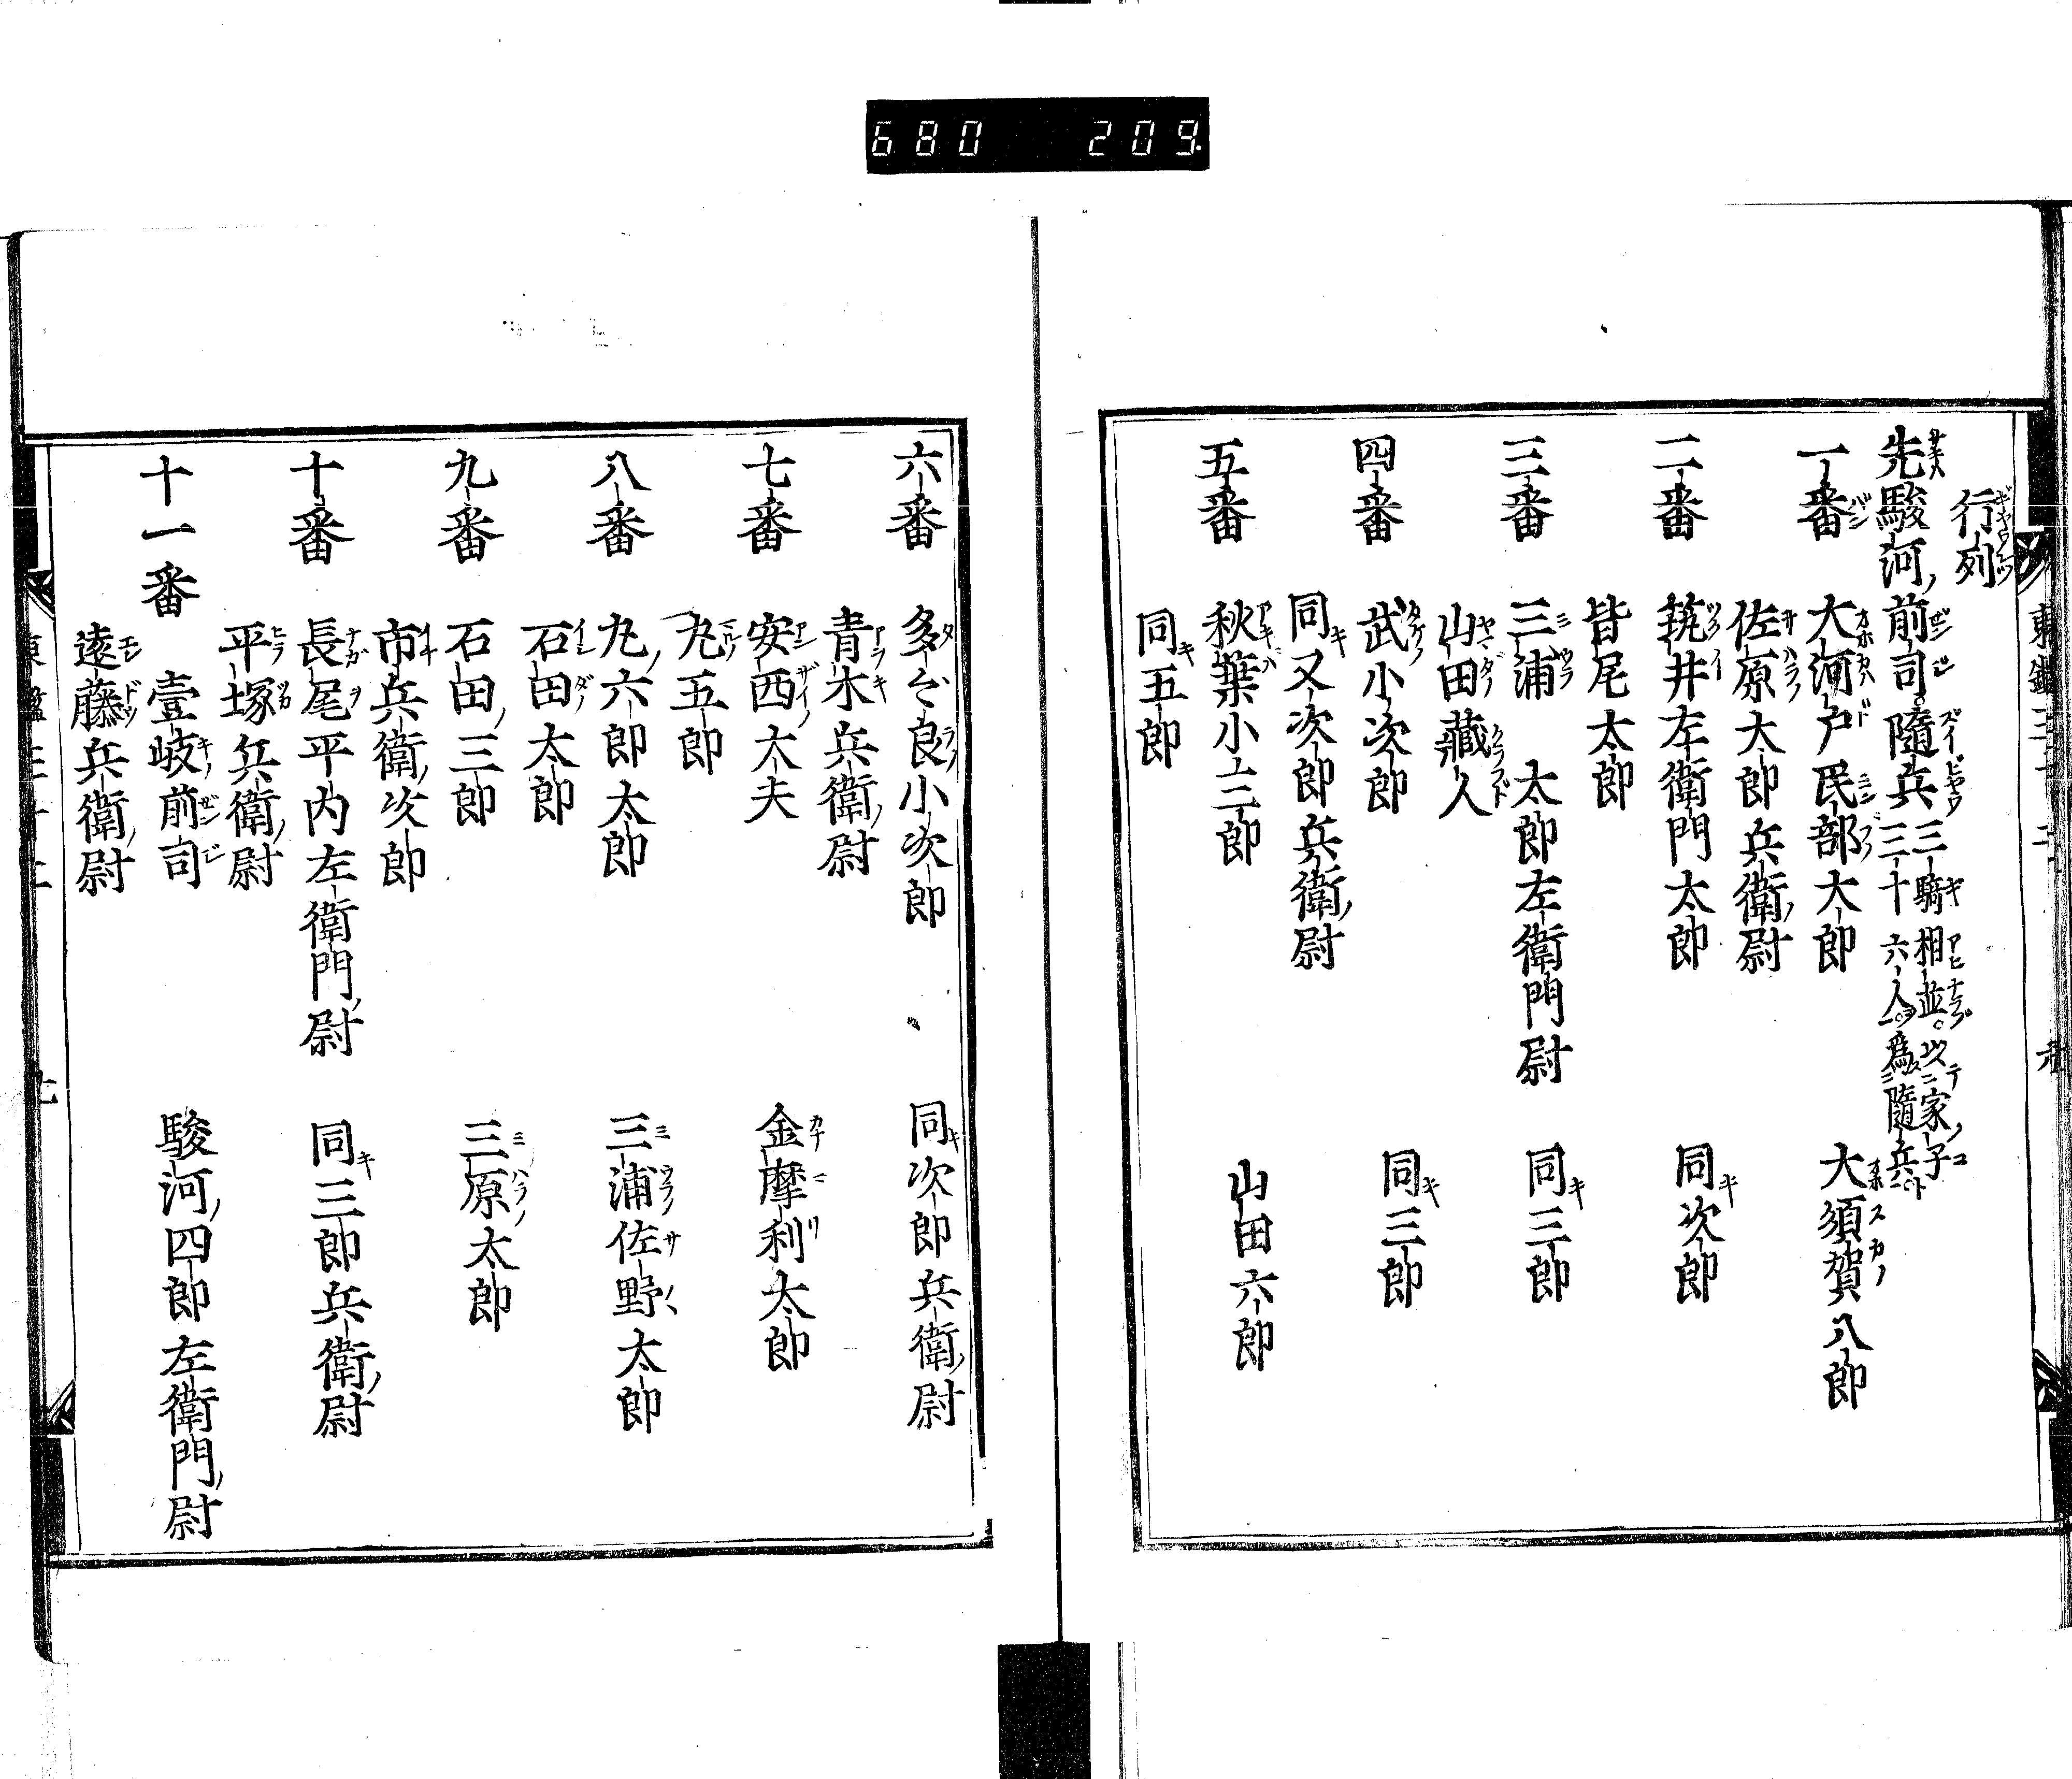 680 209
行列
先駿河前司。隨兵三十六人。爲隨兵。三騎相並。以家子
一番 大河戸民部大郎 大須賀八郎
佐原大郎兵衛尉
二番 筑井左衛門太郎 同次郎
皆尾太郎
三番 三浦太郎左衛門尉 同三郎
山田藏人
四番 武小次郎 同三郎
同又次郎兵衛尉
五番 秋葉小三郎 山田六郎
同五郎
六番 多々良小次郎 同次郎兵衛尉
青木兵衛尉
七番 安西大夫 金摩利太郎
丸五郎
八番 丸六郎太郎 三浦佐野太郎
石田太郎
九番 石田三郎 三原太郎
市兵衛次郎
十番 長尾平内左衛門尉 同三郎兵衛尉
平塚兵衛尉
十一番 壹岐前司 駿河四郎左衛門尉
遠藤兵衛尉